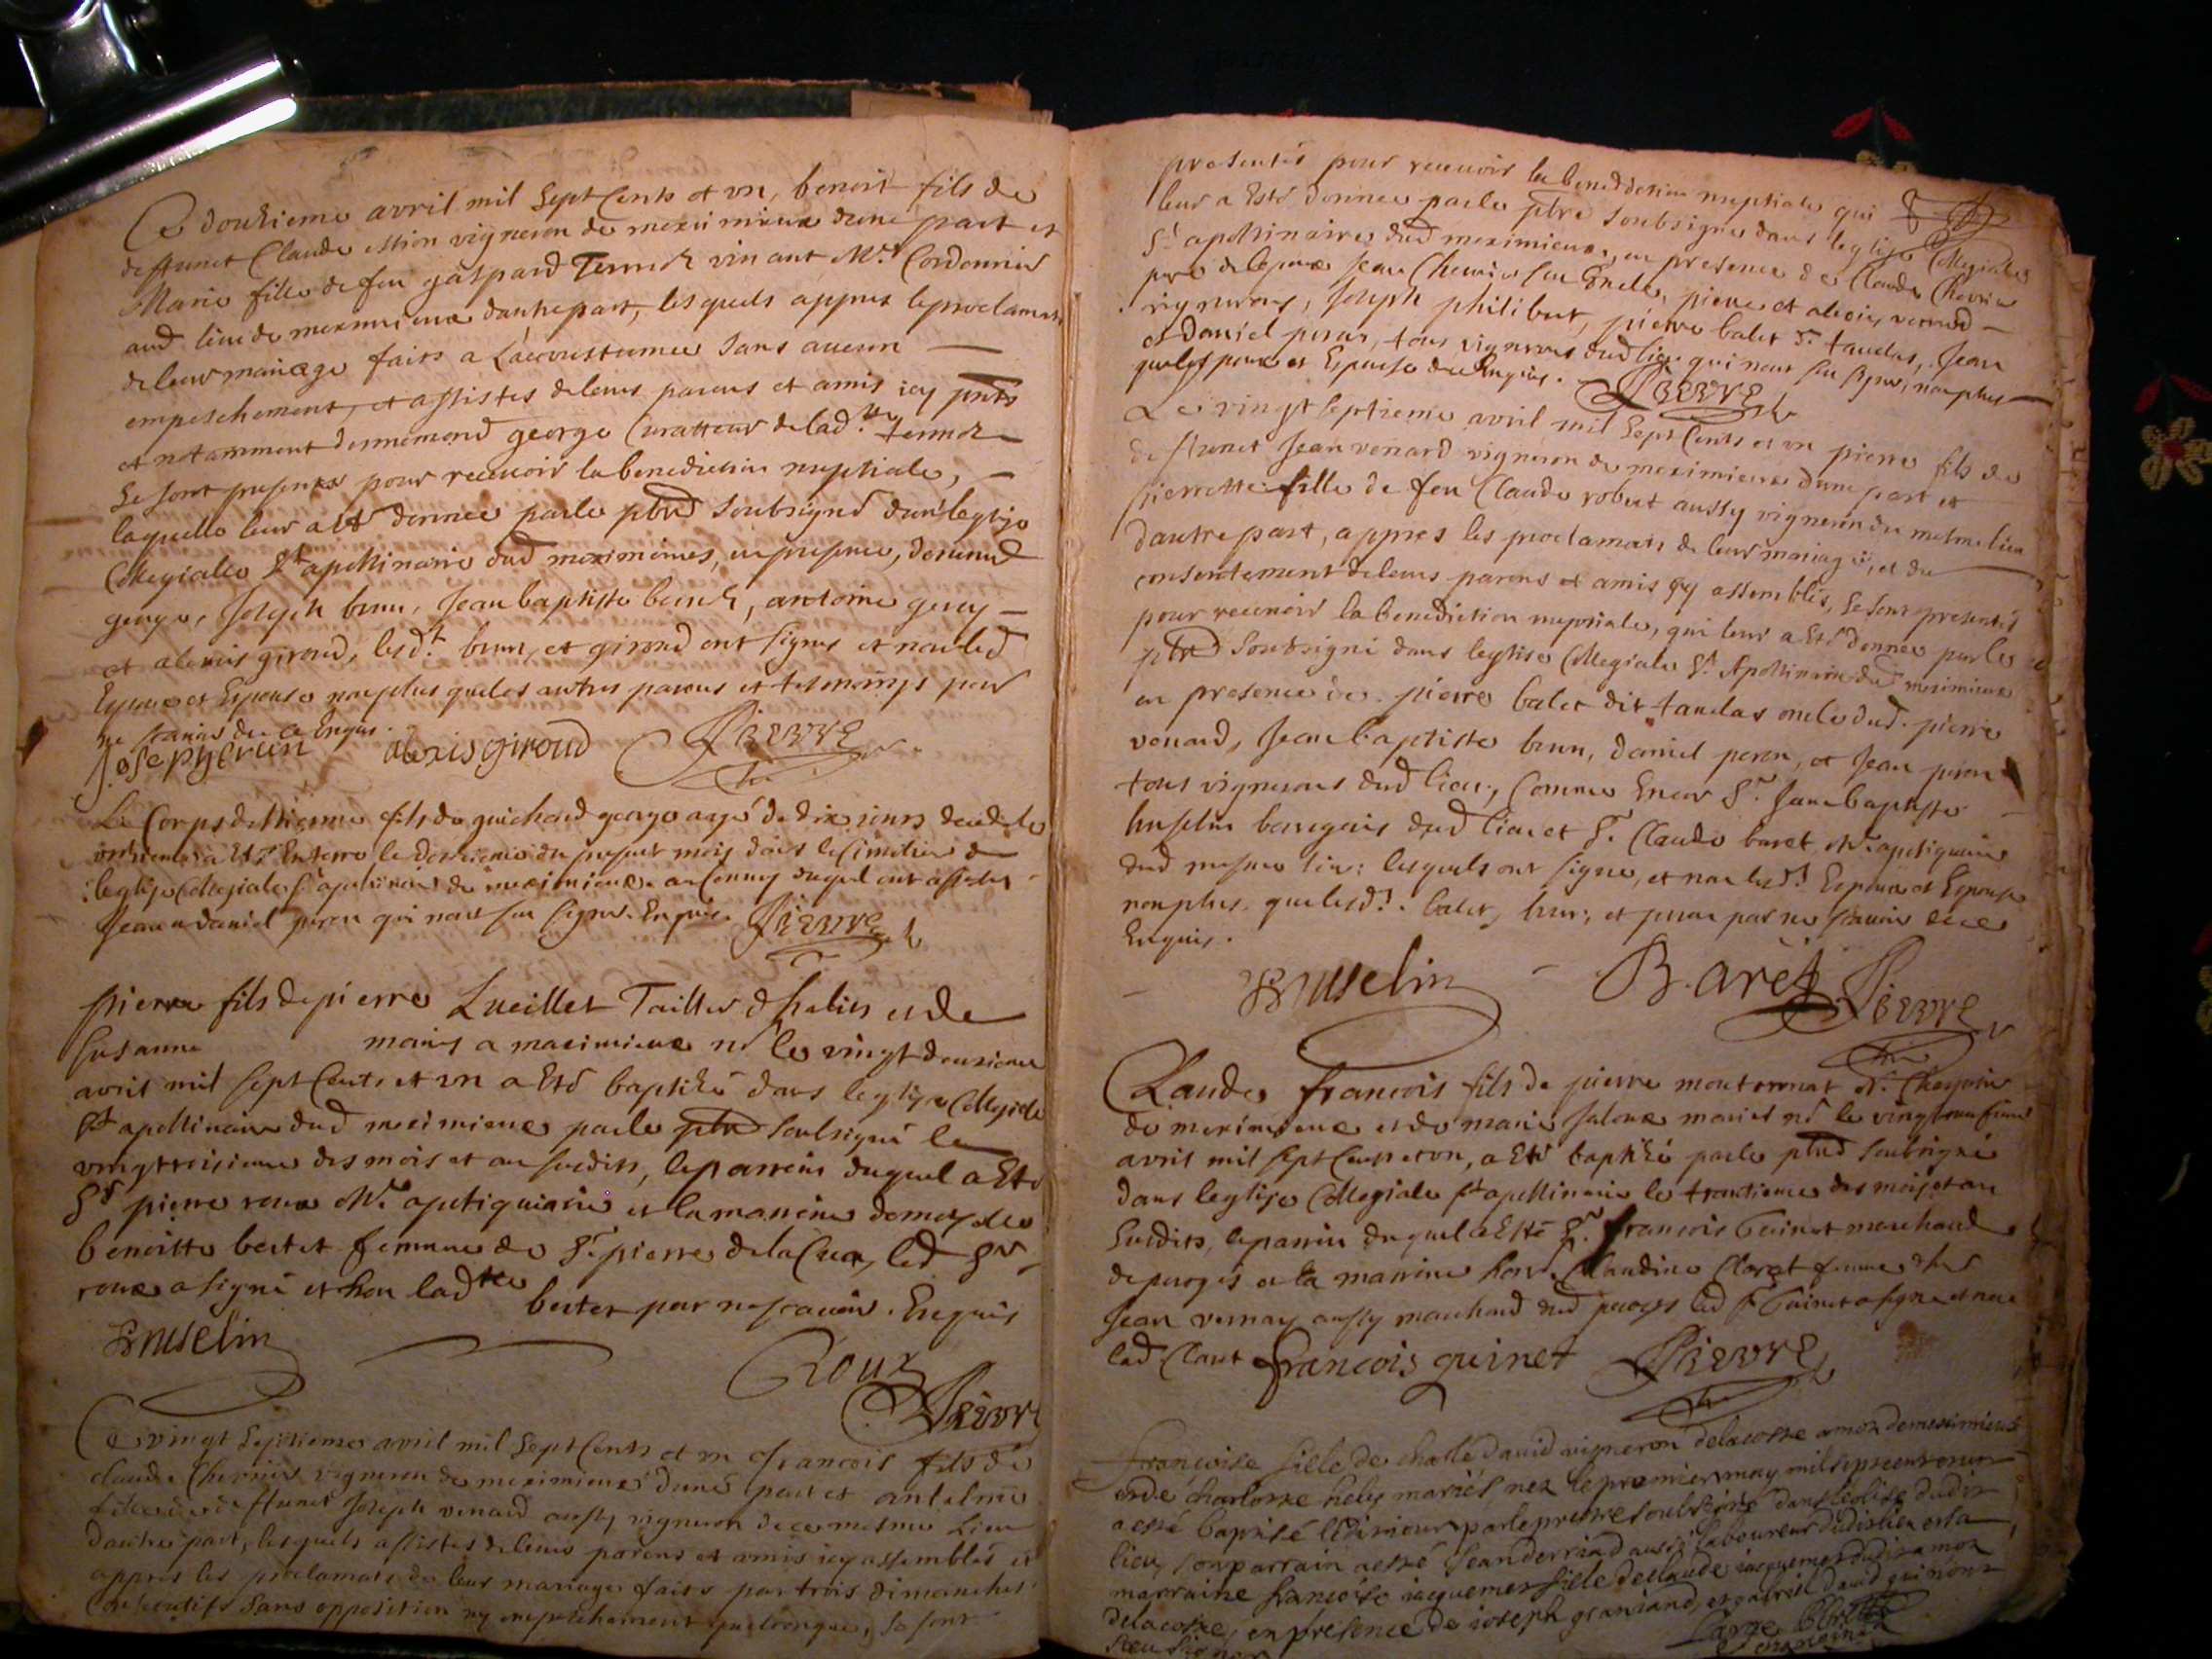 Ce douzieme avril mil sept Cents et vn, benoit fils de
deffunct Claude vigneron de meximieux dune part et
Marie fille de feu gaspard vivant Mre Cordonnier
aud lieu de meximieux dautre part, lesquels appres les proclamats
de leur mariage faits a Laccoustumee sans aucun
empeschement, et assistes de leurs parens et amis icy pnts
et notamment george Curatteur de lad.te
se sont presentes pour recevoir la benediction nuptiale,
laquelle leur a esté donnee par le pbre soubsigné dans leglise
Collegialle St apollinaire dud meximieux, en presence,
george, Joseph brun, Jean baptiste antoine
et alexis giroud, lesd.ts brun, et giroud ont signes et non led
Epoux et Epouse non plus que les autres parens et tesmoins pour
ne scavoir de ce Enquis.
Joseph brun alexis giroud Pierre
Le Corps dEstienne fils de guichard george agé de dix jours decedé le
a Esté Enterré le du present mois dans le Cimetiere de
leglise Collegiale St apollinaire de meximieux au Convoy duquel ont assistes
Jean et daniel peron qui nont sceu signer. Enquis. Pierre
pierre fils de pierre Lueillet Tailleur dhabits et de
Susanne maries a meximieux né le vingt deuxieme
avril mil sept Cents et vn a Esté baptizé dans leglise Collegiale
St apollinaire dud meximieux par le pbre soubsigné le
vingt troisieme des mois et an susdits, le parrein duquel a Esté
Sr pierre roux Mre apotiquaire et la marreine
benoitte bertet femme de Sr pierre dela Cua, led Sr
roux a signé et non lad.te bertet pour ne scavoir. Enquis
Anselin Roux
Pierre
Ce vingt septieme avril mil sept Cents et vn francois fils de
claude Chevrier vigneron de meximieux dune part et antelme
fille de deffunct Joseph venard aussy vigneron de ce mesme Lieu
dautre part, lesquels assistes de leurs parens et amis icy assemblés et
appres les proclamats de leur mariage faits par trois dimanches
Consecutifs sans opposition ny empeschement quelconque, se sont
presentés pour recevoir la benediction nuptiale qui
leur a Esté donnee par le pbre soubsigné dans leglise Collegiale
St apollinaire dud meximieux, en presence de Claude Chevrier
pere de lepoux Jean Chevrier son oncle, pierre et alexis venard
vignerons, Joseph philibert, pierre balet dt taudas, Jean
et Daniel peron, tous vignerons dud lieu qui nont sceu signer, non plus
que lespoux et Espouse de ce Enquis. Pierre
Le vingt septieme avril mil sept Cents et vn pierre fils de
deffunct Jean venard vigneron de meximieux dune part et
pierrette fille de feu Claude robert aussy vigneron du mesme lieu
dautre part, appres les proclamats de leur mariage, et du
consentement de leurs parens et amis icy assemblés, se sont presentés
pour recevoir la benediction nuptiale, qui leur a Esté donnee par le
pbre soubsigné dans leglise Collegiale St Apollinaire dud meximieux
en presence de pierre balet dit taudas oncle dud. pierre
venard, Jean baptiste brun, daniel peron, et Jean peron
tous vignerons dud lieu, Comme Encor Sr. Jean baptiste
Anselin bourgeois dud lieu et Sr. Claude baret Mre apotiquaire
dud mesme lieu: lesquels ont signe, et non lesd.ts Espoux et Espouse
non plus. que lesd.ts. balet, brun, et peron par ne scavoir de ce
Enquis.
Anselin B. aret Pierre
Claude francois fils de pierre montonnat
de meximieux et de marie maries né le vingt neufieme
avril mil sept Cents et vn, a Esté baptizé par le pbre soubsigné
dans leglise Collegiale St apollinaire le trentieme des mois et an
susdits, le parrin duquel a Esté Sr. francois Guinet marchand
de peroges et la marrine Claudine Claret femme de Sr
Jean vernay aussy marchand dud peroges led Sr Guinet a signé et non
lad Claret francois guinet Pierre
françoise fille de charle david vigneron delacoste amon de meximieux
et de charlotte hely mariés nez le premier may mil sept cent un
a esté baptisé le par le prestre soubsigné dans leglise dudit
lieu, son parrain a esté Jean derriad aussi laboureur dudit lieu et sa
marraine françoise jacquemet fille de claude jacquemet dudit amon
delacoste, en presence de joseph graniand et gabriel david qui nont
sceu signer